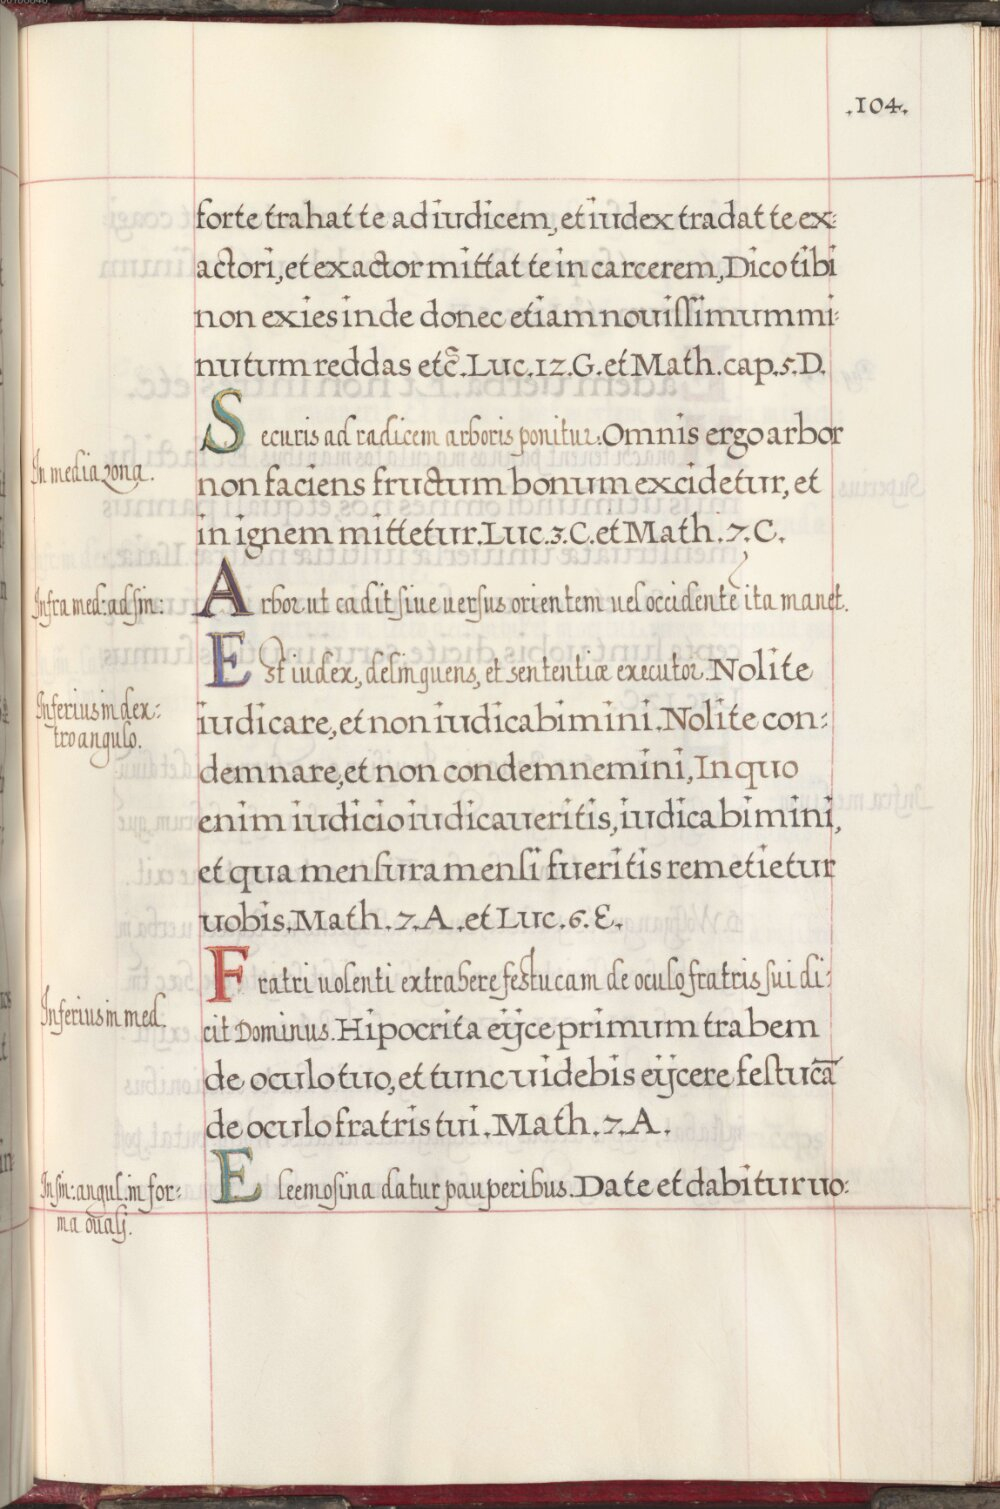 .104.
forte trahat te ad iudicem, et iudex tradat te ex:
actori, et exactor mittat te in carcerem, Dico tibi
non exies inde donec etiam nouissimum mi:
nutum reddas etc̃. Luc. 12. G. et Math. cap. 5. D.
Securis ad radicem arboris ponitur. Omnis ergo arbor
In media zona.
non faciens fructum bonum excidetur, et
in ignem mittetur. Luc. 3. C. et Math. 7. C.
Infra med: ad sin:
Arbor ut cadit siue uersus orientem uel occidentẽ ita manet.
Est iudex, delinquens, et sententiæ executor. Nolite
Inferius in dex:
tro angulo.
iudicare, et non iudicabimini. Nolite con:
demnare, et non condemnemini, In quo
enim iudicio iudicaueritis, iudicabimini,
et qua mensura mensi fueritis remetietur
uobis. Math. 7. A. et Luc. 6. E.
Fratri uolenti extrahere festucam de oculo fratris sui di:
Inferius in med.
cit Dominus. Hipocrita eijce primum trabem
de oculo tuo, et tunc uidebis eijcere festucã
de oculo fratris tui. Math. 7. A.
In sin: angul: in for:
ma ouali.
Eleemosina datur pauperibus. Date et dabitur uo: